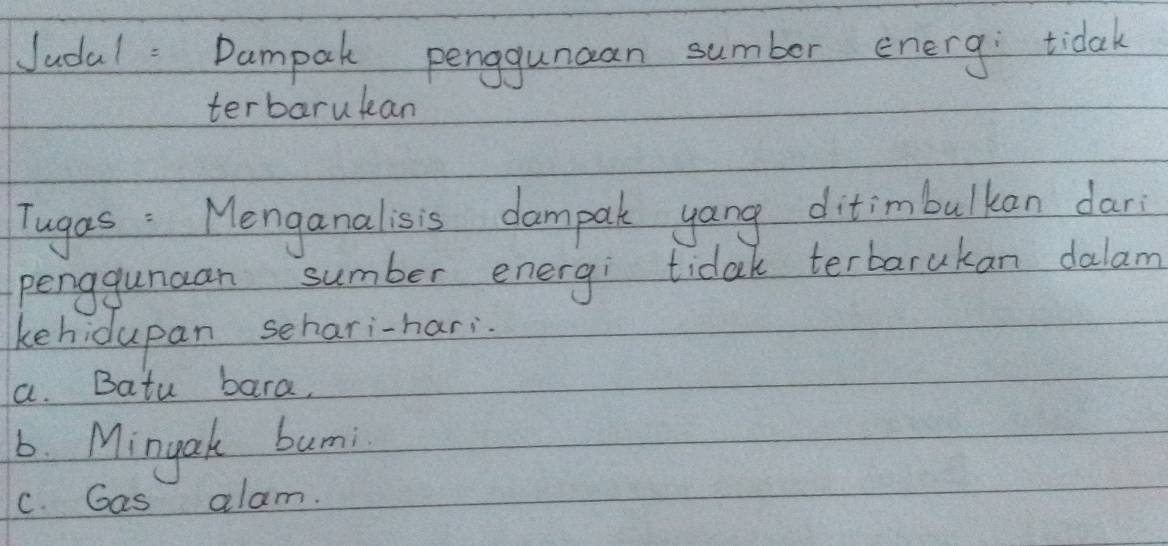 Judul : Dampak penggunaan sumber energi tidak
terbarukan
Tugas : Menganalisis dampak yang ditimbulkan dari
penggunaan sumber energi tidak terbarukan dalam
kehidupan sehari-hari.
a. Batu bara.
b. Minyak bumi.
c. Gas alam.